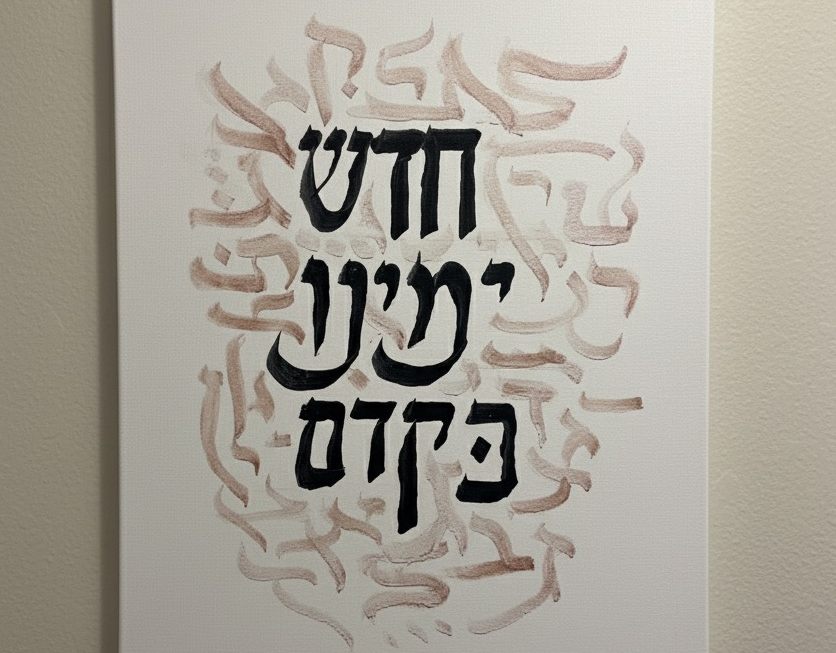 חדש
ימינו
כּקדם